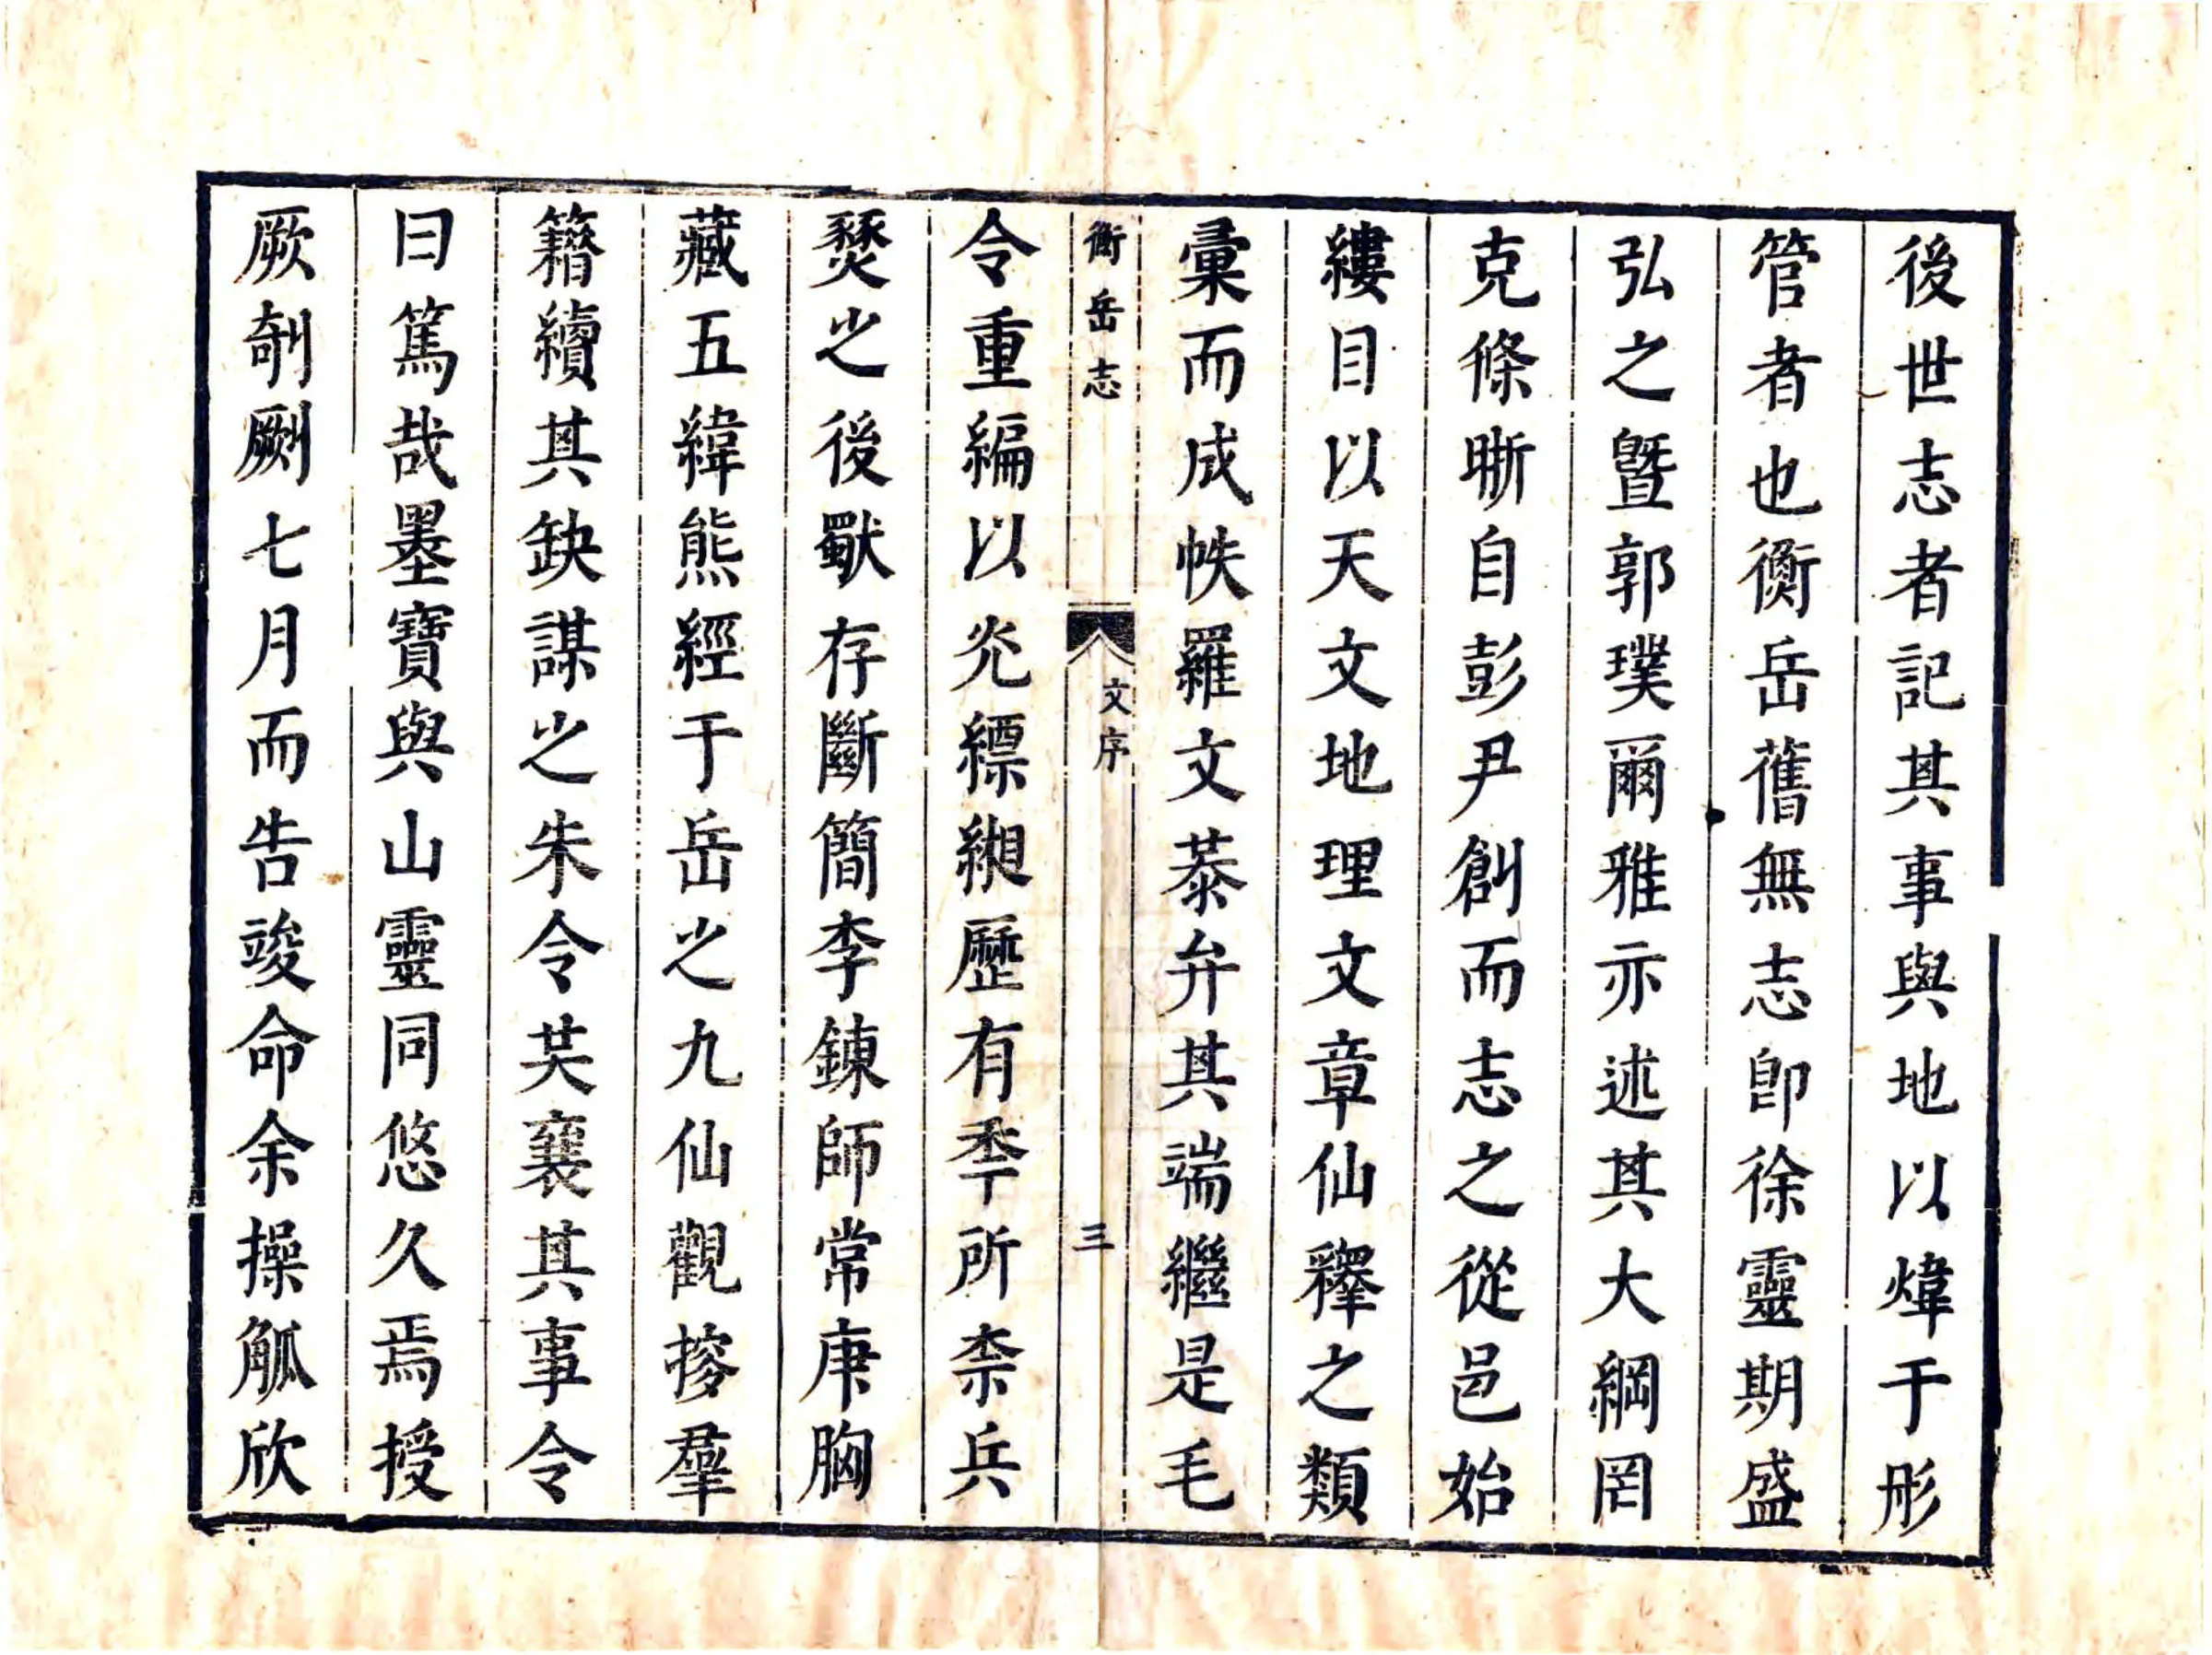 後世志者記其事與地以煒于彤
管者也衡岳舊無志卽徐靈期盛
弘之曁郭璞爾雅亦述其大綱罔
克條晣自彭尹創而志之從邑始
縷目以天文地理文章仙釋之類
彙而成帙羅文恭弁其端繼是毛
衡岳志 文序 三
令重編以灮縹緗歷有秊所柰兵
燹之後獸存斷簡李鍊師常庚胸
藏五緯熊經于岳之九仙觀搜羣
籍續其缺謀之朱令芙襄其事令
曰篤哉墨寶與山靈同悠久焉授
厥剞劂七月而告竣命余操觚欣